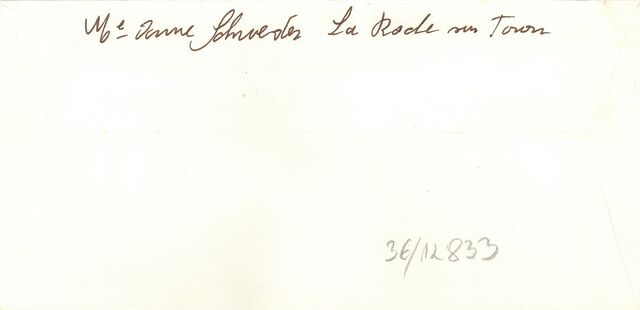 Me Anne Schroeder La Roche sur Foron
36/12833